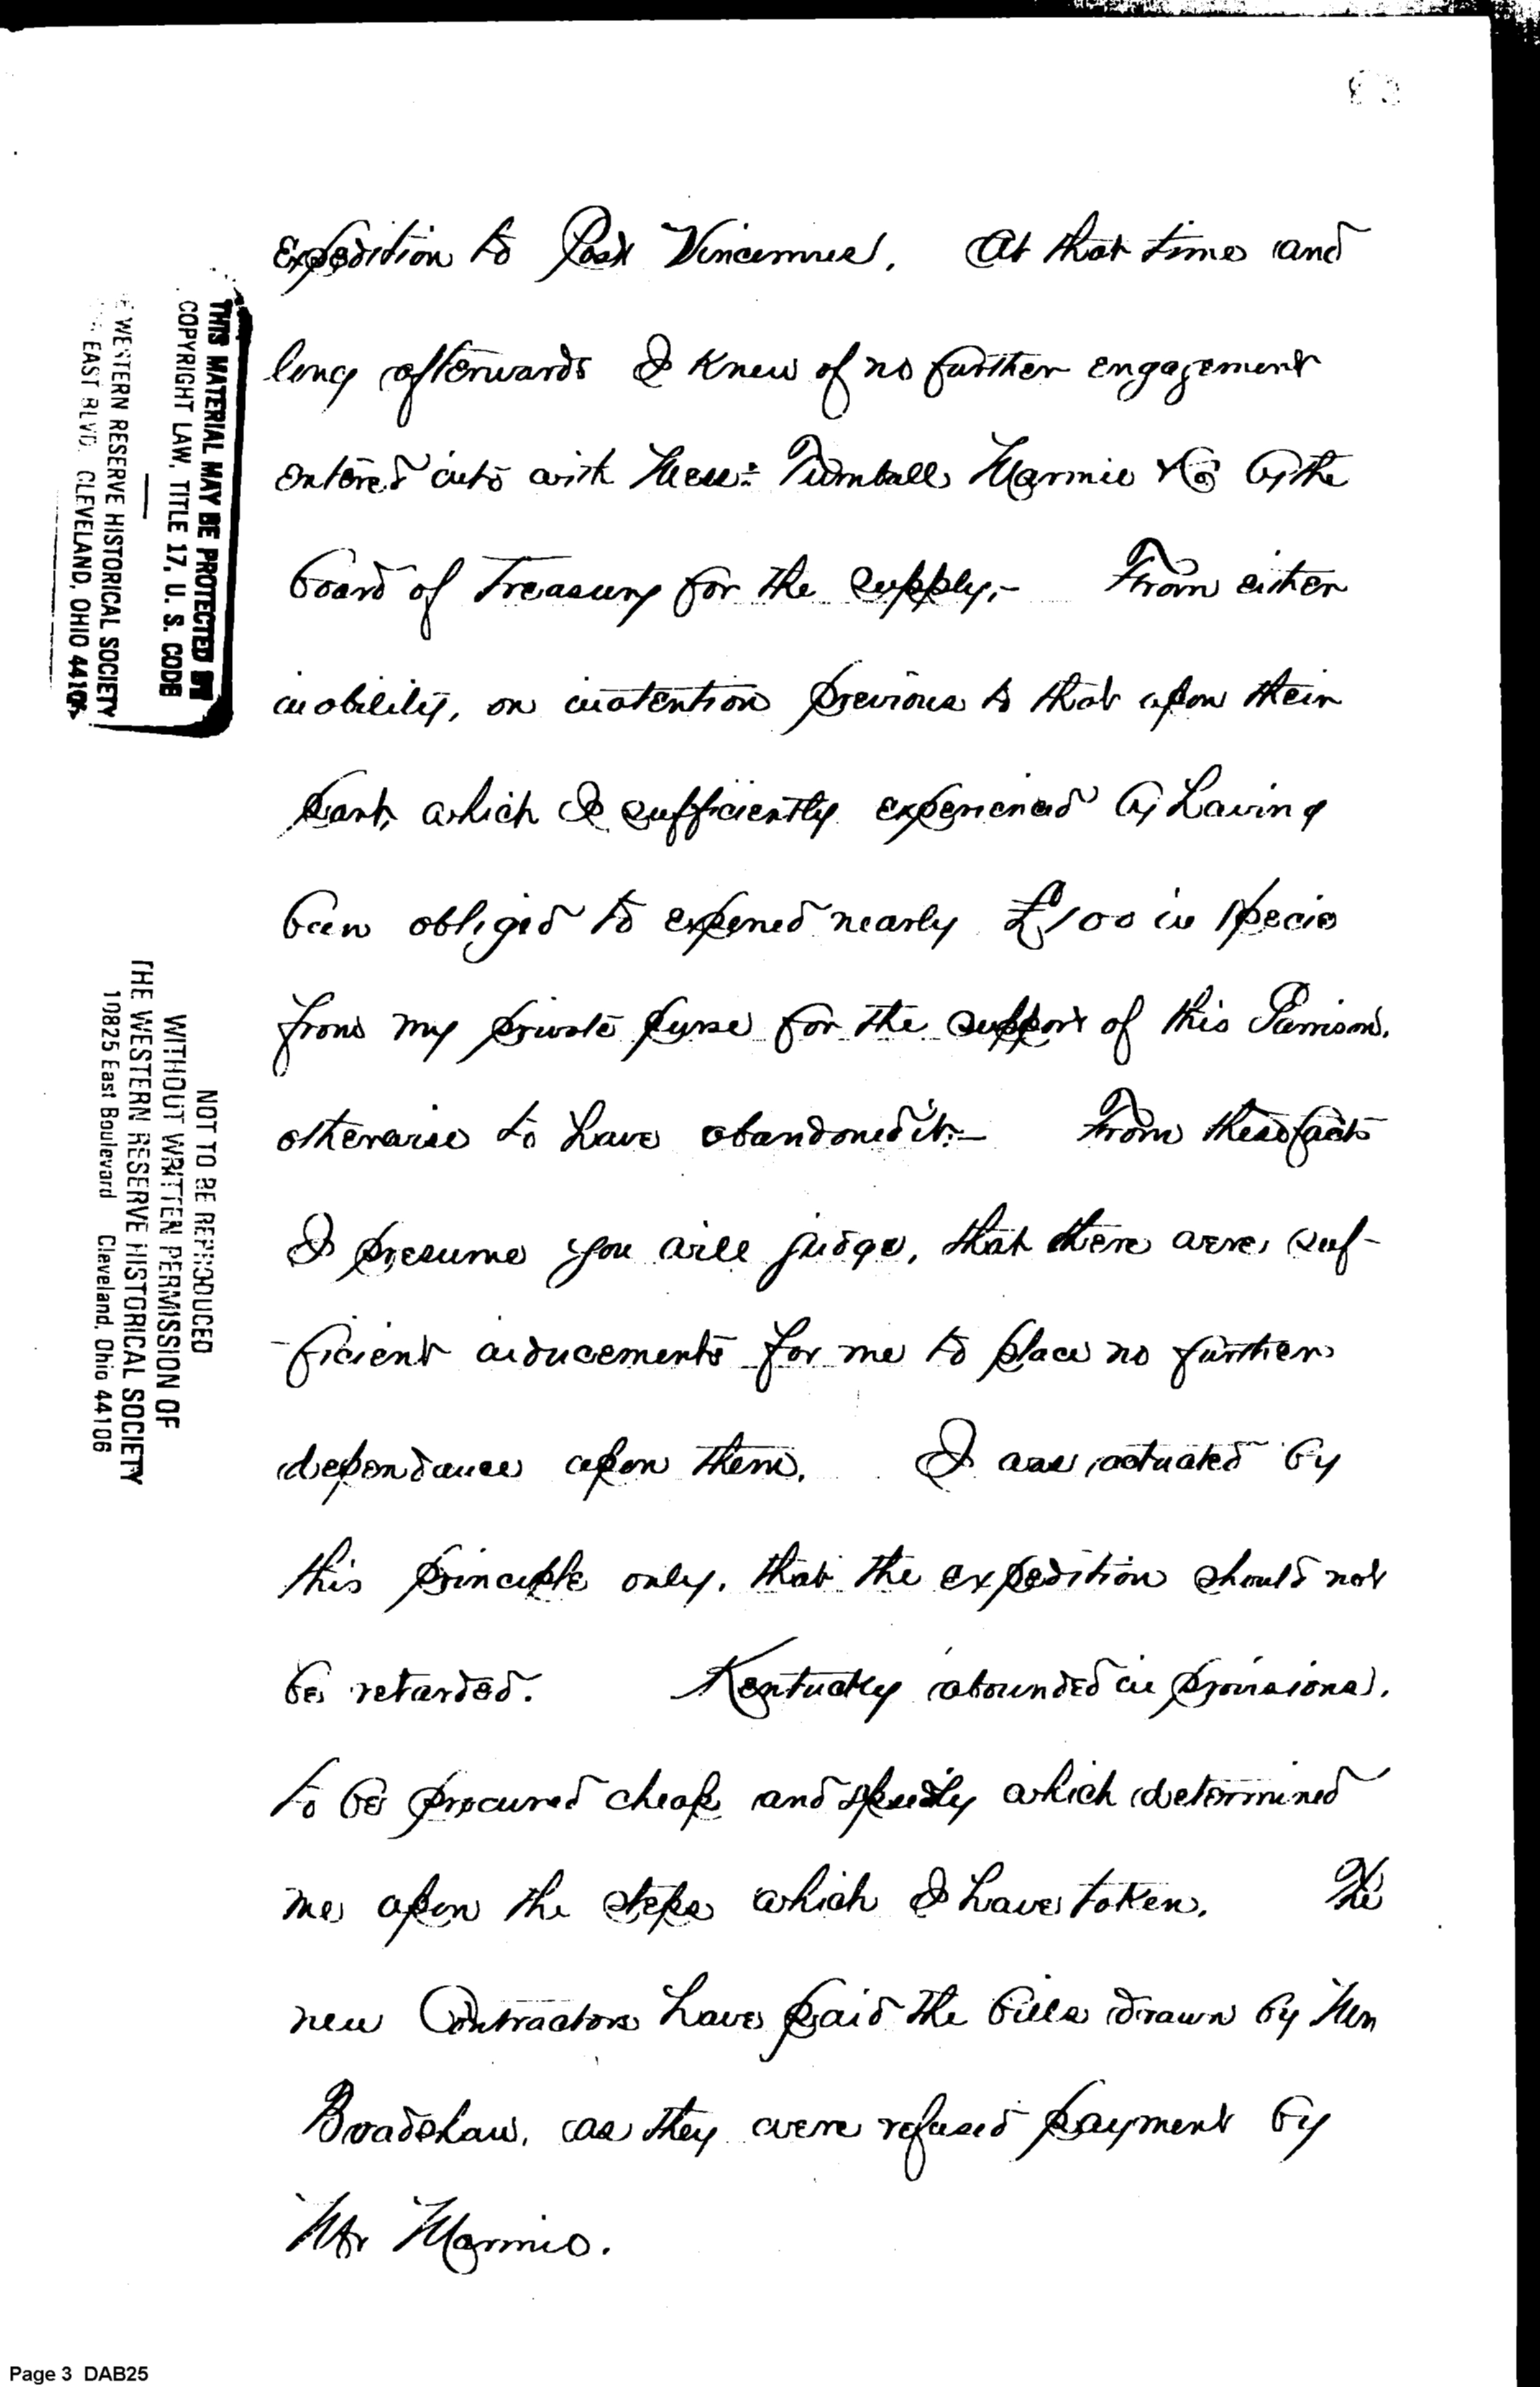 expedition to Post Vincennes. At that time and
long afterwards I knew of no further engagement
entered into with Mess: Turnbull Marmie & Co by the
board of Treasury for the supply,— From either
inability, or inatention previous to that upon their
part, which I sufficiently experienced by having
been obliged to expened nearly £100 in specie
from my private purse for the support of this Garrison,
otherwise to have abandoned it:— From these facts
I presume you will judge, that there were suf-
-ficient inducements for me to place no further
dependance upon them. I was actuated by
this principle only, that the expedition should not
be retarded. Kentucky abounded in provisions,
to be procured cheap and speedily which determined
me upon the steps which I have taken. The
new Contractors have paid the bills drawn by Mr
Bradshaw, as they were refused payment by
Mr Marmie.
THIS MATERIAL MAY BE PROTECTED BY
COPYRIGHT LAW, TITLE 17, U. S. CODE
WESTERN RESERVE HISTORICAL SOCIETY
EAST BLVD. CLEVELAND, OHIO 44106
NOT TO BE REPRODUCED
WITHOUT WRITTEN PERMISSION OF
THE WESTERN RESERVE HISTORICAL SOCIETY
10825 East Boulevard Cleveland, Ohio 44106
Page 3 DAB25